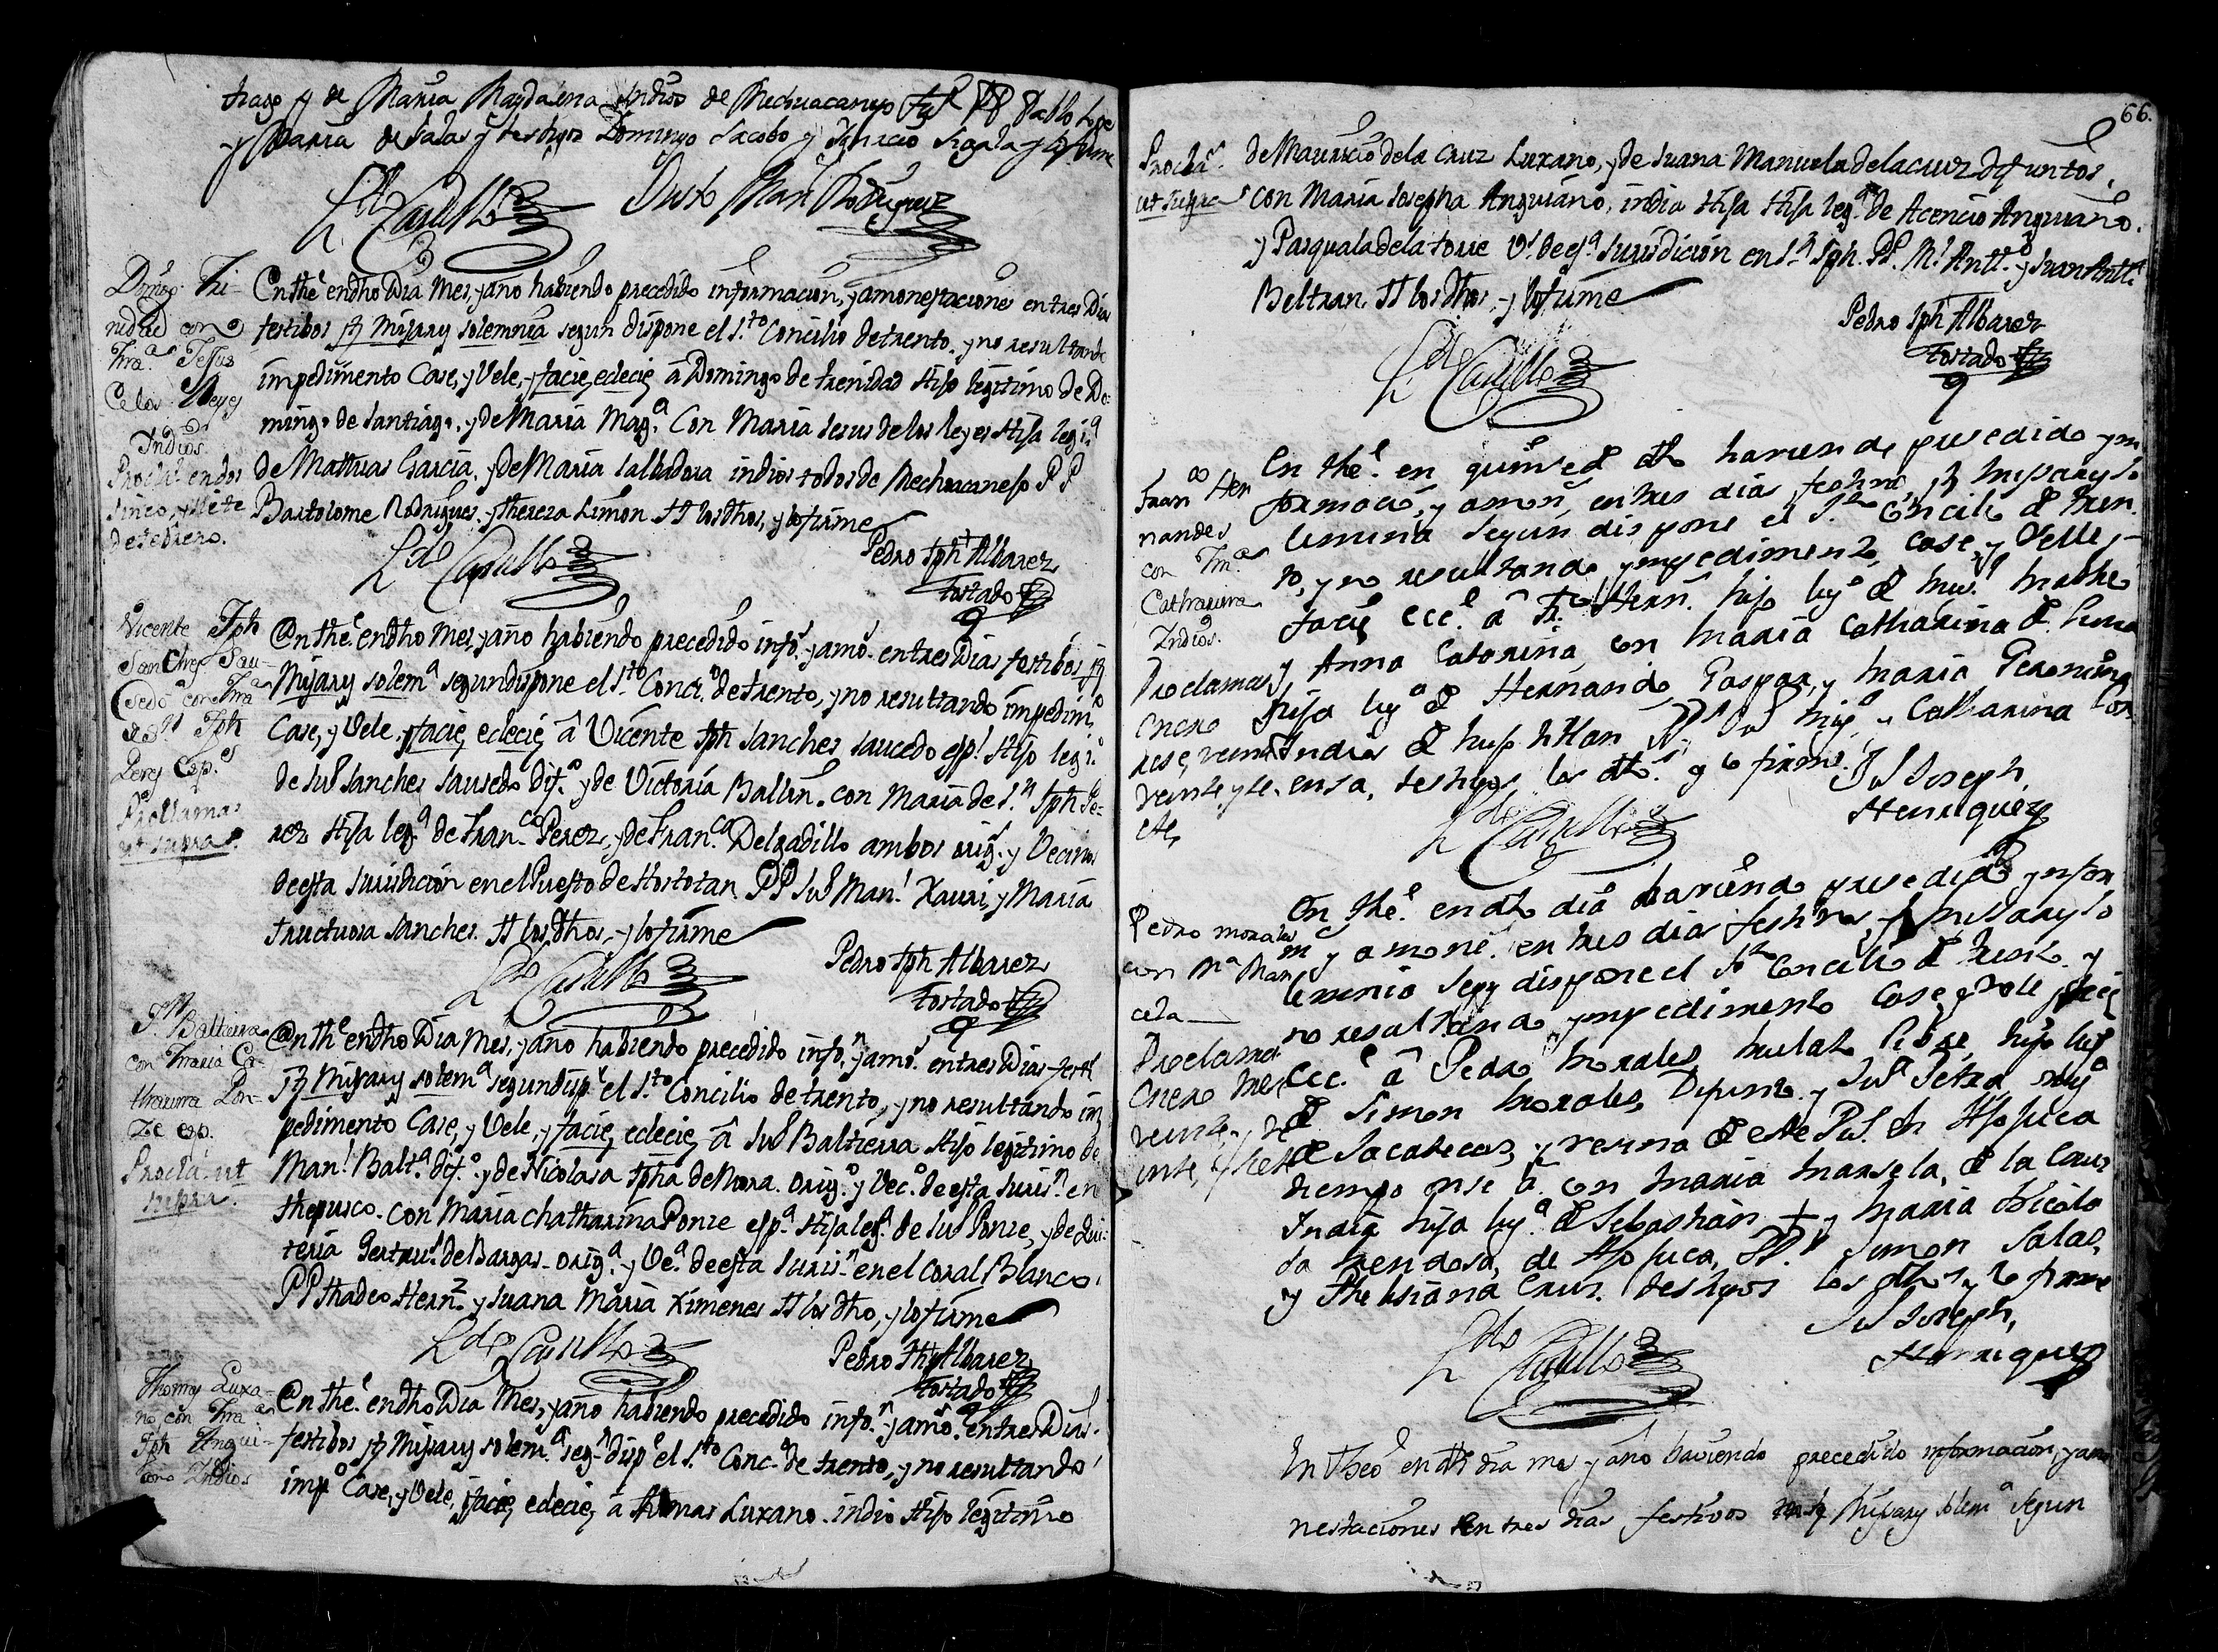 trago y de Maria Magdalena Indios de Mechuacanejo PP Pablo Lope
y Maria de Salas y testigos Domingo Jacobo y Ignacio Sigala y lo firme
L.do Carillo
Juo Man Rodriguez
Dmgo. Tri-
nidad con
Ma. Jesus
de los Reyes
Indios
Procla. en dos
sinco, y siete
de febrero.
En the. en dho Dia Mes, y año habiendo precedido informacion, y amonestaciones en tres Dias
festibos Misary solemnia segun dispone el S.to Concilio de trento. y no resultando
impedimento Case, y Vele, y facie, eclecie, â Domingo de trenidad Hijo legitimo de Do-
mingo de Santiago, y de Maria Mag.a Con Maria Jesus de los reyes Hija legi.a
de Mathias Garcia, y de Maria Salbadora indios todos de Mechuacanejo PP
Bartolome Rodrigues. y thereza Limon. TT los Dhos, y lo firme
L.do Carillo
Pedro Jph Albarez
tostado
Vicente Jph
Sanches Sau-
sedo con Ma.
de Sn Jph
Perez Esp.s
Proclamas
ut supra.
En the. en dho Mes, y año habiendo precedido info.n y amo.s en tres Dias festibos
Misary solem.a segun dispone el S.to Conci.o de trento, y no resultando impedim.o
Case, y Vele, y facie, eclecie, â Vicente Jph Sanches Saucedo esp.l Hijo legi.o
de Jul Sanches Sausedo Dif.o y de Victoria Ballin. con Maria de S.n Jph Pe-
rez Hija leg.a de Fran.co Perez, y de Fran.ca Delgadillo ambos orig.s y Vecinos
de esta Jurisdicion en el Puesto de Hostotan PP Jul Man.l Xauri, y Maria
Fructuosa Sanches. TT los Dhos, y lo firme
L.do Carillo
Pedro Jph Albarez
tostado
Jn Baltierra
con Maria Ca-
tharina Pon-
ze esp.
Procla. ut
supra.
En the. en dho Dia Mes, y año habiendo precedido info.n y amo.s en tres Dias festi
Misary solem.a segun disp.e el S.to Concilio de trento, y no resultando im
pedimento Case, y Vele, y facie, eclecie, â Jul Baltierra Hijo legitimo de
Man.l Balt.a dif.o y de Nicolasa Jpha de Mora. Orig.o y Vec.o de esta Juris.n en
thepusco. con Maria Chatharina Ponze esp.a Hija leg.a de Jul Ponze, y de Qui-
teria Gertru.s de Bargas. Orig.a y Ve.a de esta Juris.n en el Coral Blanco.
PP thadeo Hern.z y Juana Maria Ximenes TT los Dho, y lo firme
L.do Carillo
Pedro Jph Albarez
tostado
Thomas Luxa-
no con Ma.
Jph Angui-
ano Indios
En the. en dho Dia Mes, y año habiendo precedido info.n y amo.s en tres Dias.
festibos Misary solem.a seg.n disp.e el S.to Conc.o de trento, y no resultando
imp.o Case, y Vele, y facie, eclecie, â thomas Luxano. indio Hijo legitimo
66.
Procla.s
ut supra
de Mauricio de la Cruz Luxano, y de Juana Manuela de la cruz difuntos.
con Maria Josepha Anguiano, india Hija Hija leg.a de Acencio Anguiano.
y Pasquala de la torre V.s de es.a Jurisdicion en S.n Jph. PP. M.l Antt.o y Juan Antt.o
Beltran. TT los Dhos, y lo firme
L.do Carillo
Pedro Jph Albarez
tostado
Fran.co Her
nandes
con Ma.
Catharina
Indios.
Proclamas
Enero
rese, veinte
veinte y si-
ete,
En the. en quinse de dho haviendo presedido yn
formacio, y amon. en tres dias festivo, Misary so
lemnia segun dispone el S.to Concilio de tren
to, y no resultando ympedimento, Case, y Velle, y
facie ecc.e â Fr.co Hern. hijo leg.o de Mathe
y Anna Catorina, con Maria Catharina de
hija leg.a de Hernando Gaspar, y Maria Geronima
Indios de PP.s Jul Mig.l y Catharina
en sa, testigos los dho.s y lo firme.
L.do Carillo
Jul Joseph
Henriquez
Pedro morales
con Ma. Mar
cela
Proclama
Enero tres
veinte, y ve
inte, y siete
En the. en dho dia haviendo presedido ynfor
m.n y amone. en tres dias festivos, Misary so
lemnia segu dispone el S.to Concilio de trento. y
no resultando ympedimento Case y Vele facie
ecc.e â Pedro Morales, Mulato libre, hijo leg.o
de Simon Morales, Difunto. y Petra
de Sacatecas, y vesino de este Pu.o
tiempo con Maria Marsela, de la Cruz
India hija leg.a de Sebastian + y Maria Nicola
sa Mendosa, de PP. Simon Salas,
y Cruz. testigos los dhos y lo firme
L.do Carillo
Jul Joseph,
Henriquez
En Theo. en dho dia mes y año haviendo precedido informacion, y amo
nestaciones en tres dias festivos Misary solem.a segun